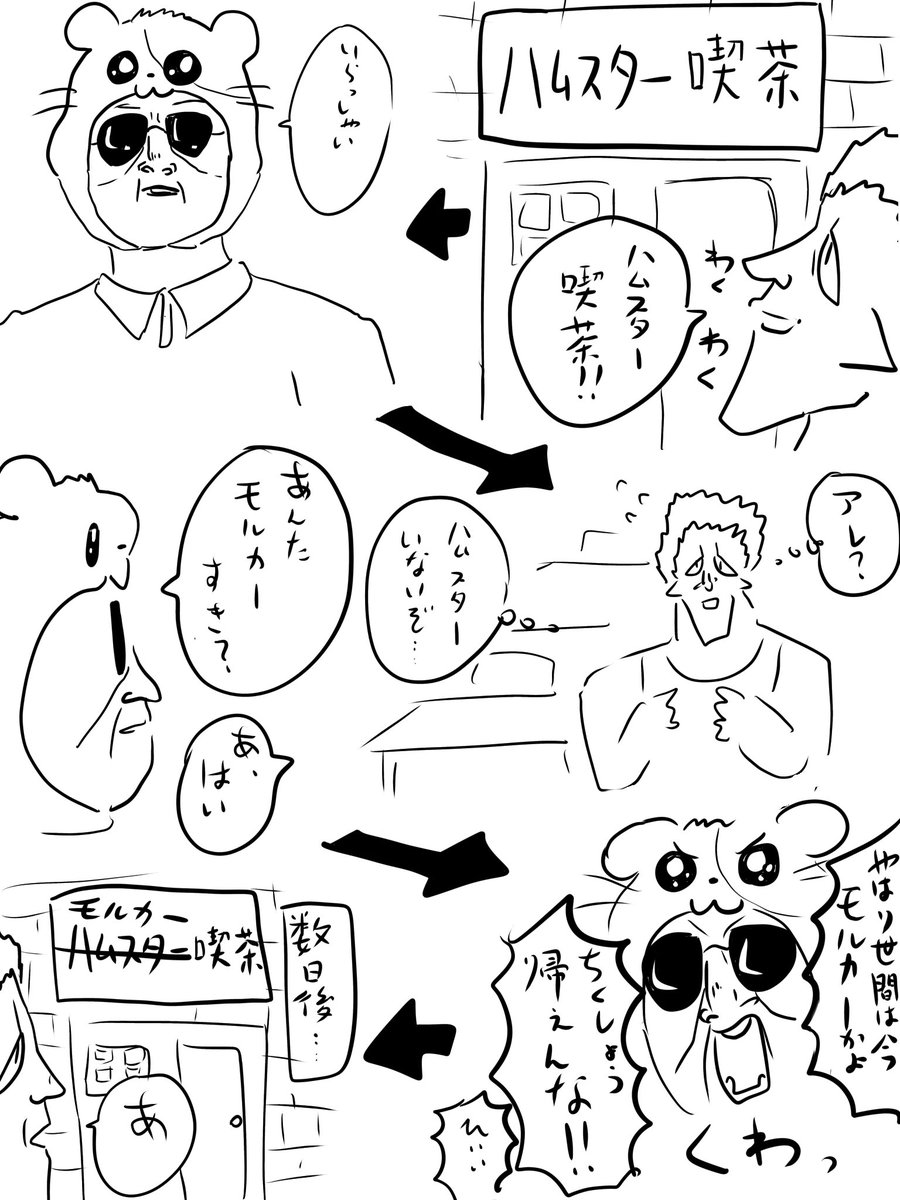 ハムスター喫茶
わくわく
ハムスター
喫茶!!
い〜っしゃい
アレ?
ハムスター
いないぞ…
あんた
モルカー
すき?
あ、
はい
やはり世間は今
モルカーかよ
ちくしょう
帰えんな!!
くわっ
ひぃ…
数日後…
モルカー
ハムスター喫茶
あ